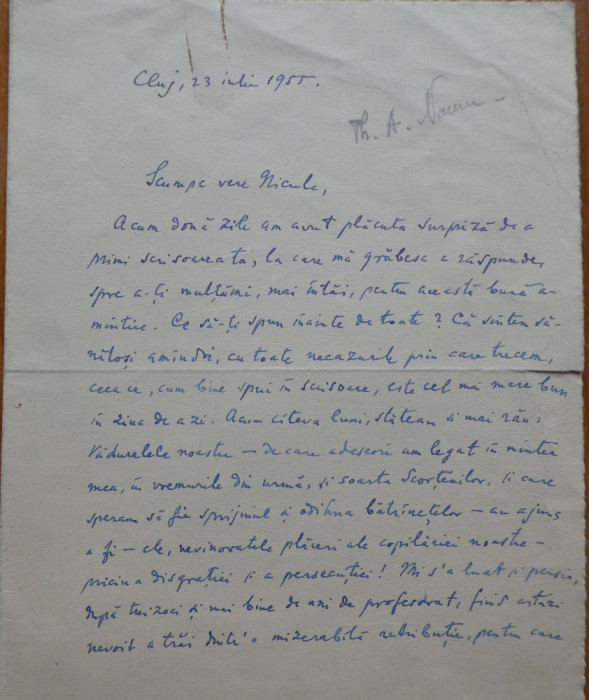 Cluj, 23 iulie 1955.
Th. A. Naum
Scumpe vere Nicule,
Acum două zile am avut plăcuta surpriză de a
primi scrisoarea ta, la care mă grăbesc a răspunde,
spre a-ți mulțumi, mai întăi, pentru această bună a-
mintire. Ce să-ți spun înainte de toate? Că sîntem să-
nătoși amîndoi, cu toate necazurile prin care trecem,
ceea ce, cum bine spui în scrisoare, este cel mai mare bun
în ziua de azi. Acum cîteva luni, stăteam și mai rău:
Vădurelele noastre – de care adeseori am legat în mintea
mea, în vremurile din urmă, și soarta Scorțenilor, și care
speram să fie sprijinul și odihna bătrînețelor – au ajuns
a fi – ele, nevinovatele plăceri ale copilăriei noastre –
pricina disgrației și a persecuției! Mi s'a luat și pensia,
după treizeci și mai bine de ani de profesorat, fiind astăzi
nevoit a trăi dintr'o mizerabilă retribuție, pentru care